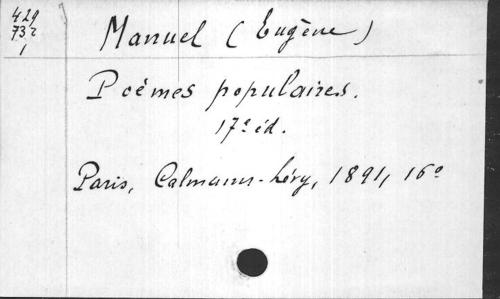 429
732
1
Manuel (Eugène)
Poèmes populaires.
17e éd.
Paris, Calmann-Lévy, 1891, 16o